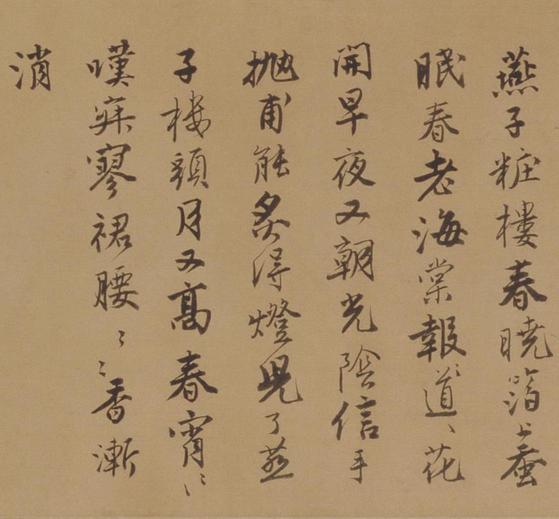 燕子粧樓春曉箔上蚕
眠春老海棠報道〻花
開早夜又朝光陰信手
抛甫能炙得燈兒了燕
子樓頭月又高春宵〻〻
嘆寂寥裙腰〻〻香漸
消